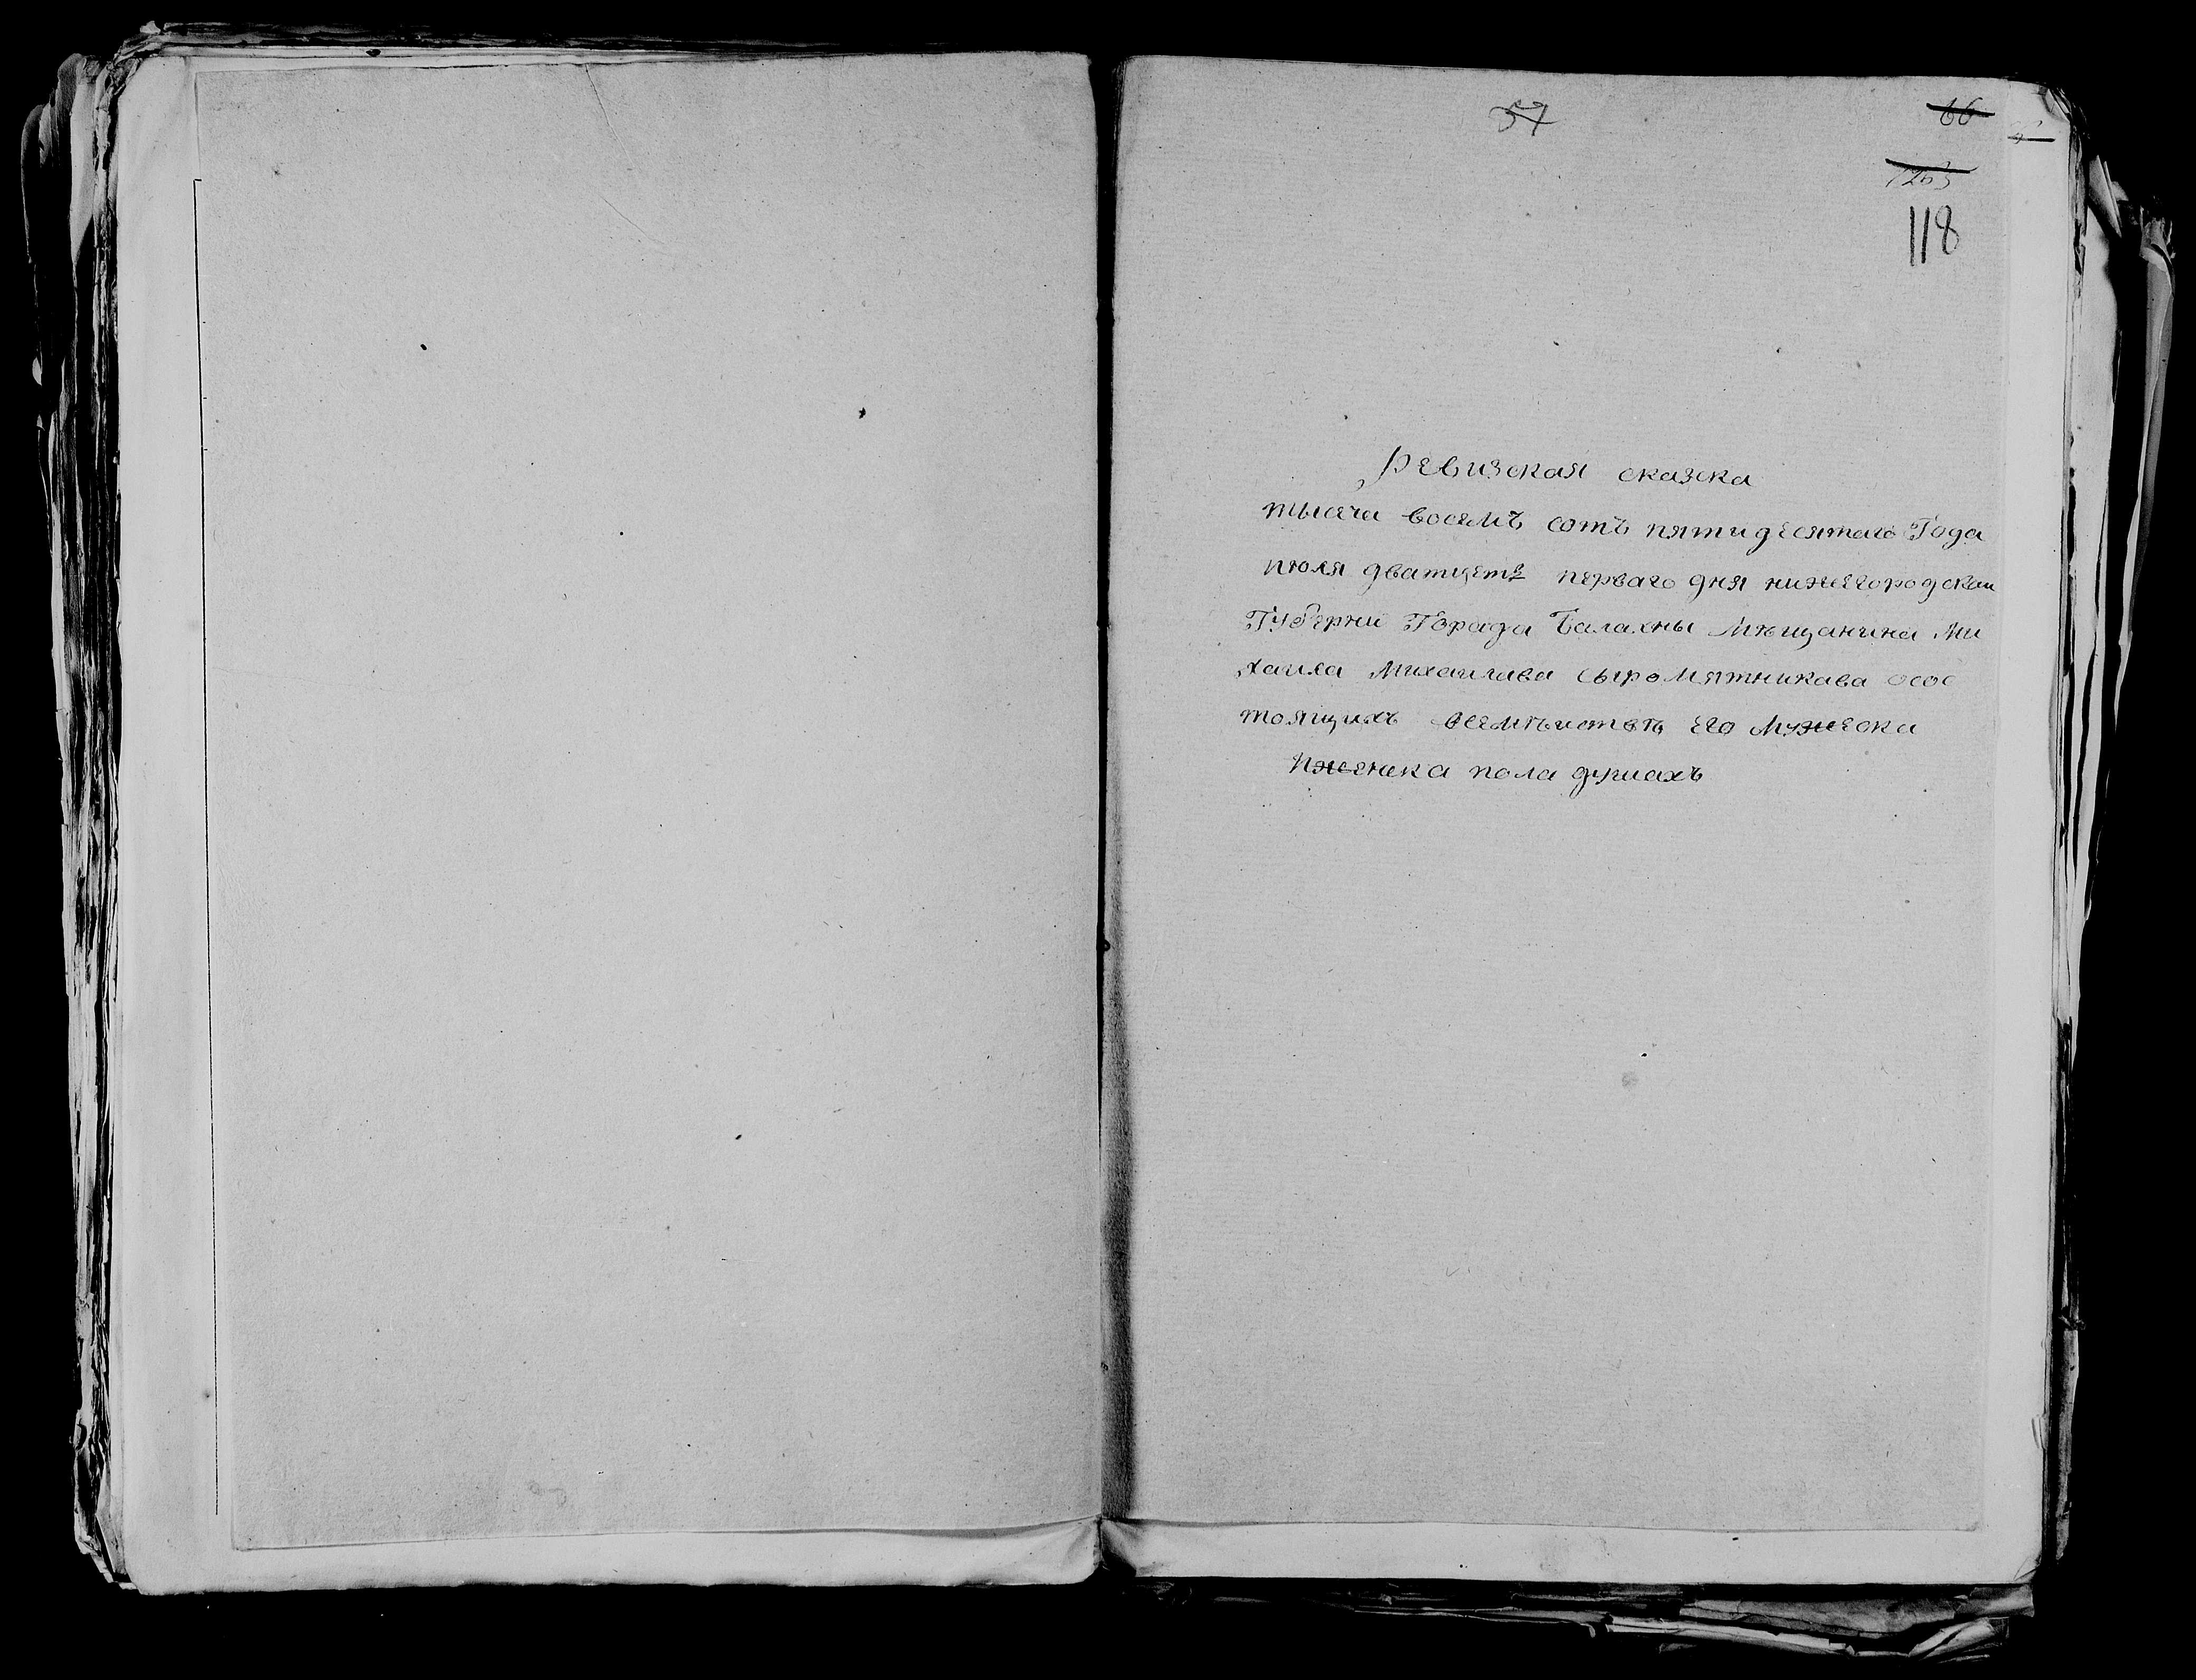 57
66
1263
118
Ревизская сказка
тысяча восемъ сотъ пятидесятаго Года
июля дватцеть перваго дня нижегородскаи
Губернии Горада Балахны Мѣщанина Ми
хаила Михаилава сыромятникава осос
тоящихъ всемѣистве его Мужеска
иженска пола душахъ